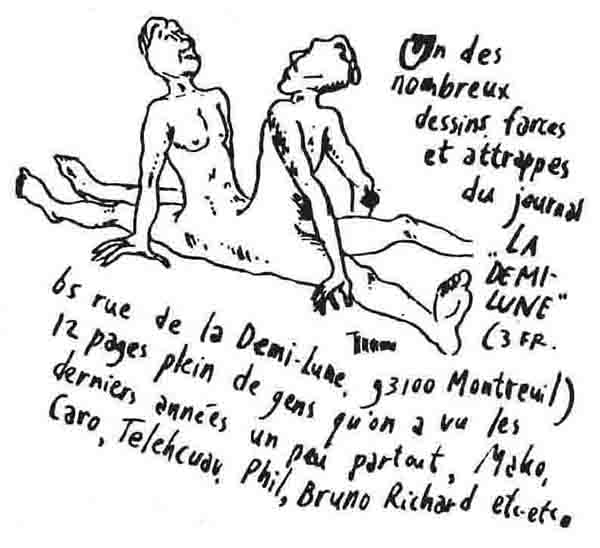 Un des
nombreux
dessins farces
et attrappes
du journal
"LA
DEMI-
LUNE"
(3 FR.
65 rue de la Demi-Lune, 93100 Montreuil)
12 pages plein de gens qu'on a vu les
derniers années un peu partout, Mako,
Caro, Phil, Bruno Richard etc-etc.